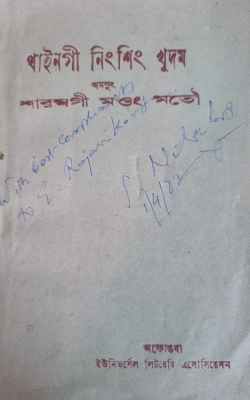 খাইনগী নিংশিং খুদম
অমসুং
শারমগী মওং মতৌ
With best compliments
to E. Rajanikanta
1/4/82
অফোঙবা
ইউনিভর্সেল লিটরেরি এসোসিয়েসন